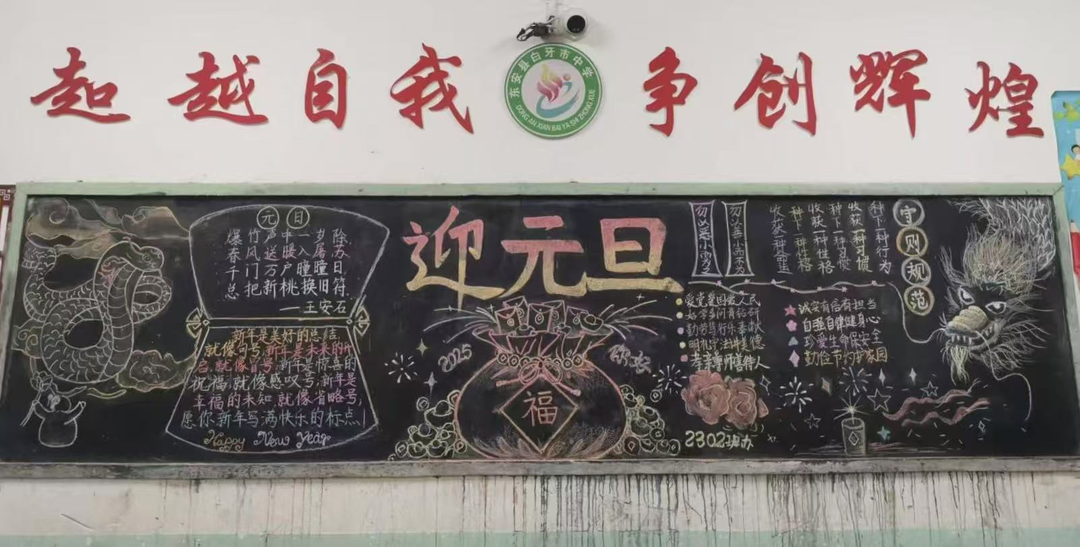 超越自我 争创辉煌
东安县白牙市中学
DONG AN XIAN BAI YA SHI ZHONG XUE
元日
爆竹声中一岁除
春风送暖入屠苏
千门万户曈曈日
总把新桃换旧符
——王安石
新年是美好的总结
就像句号,新年是未来的
就像冒号,新年是惊喜的
祝福,就像感叹号,新年是
幸福的未知,就像省略号
愿你新年写满快乐的标点!
Happy New Year
迎元旦
2025
欢乐
福
勿以恶小而为
勿以善小而不为
守则规范
种下一种行为
收获一种习惯
种下一种习惯
收获一种性格
种下一种性格
收获一种命运
爱党爱国爱人民
好学多问肯钻研
勤劳笃行乐奉献
明礼守法讲美德
孝亲尊师善待人
诚实守信有担当
自强自律健身心
珍爱生命保安全
勤俭节约护家园
2302班办